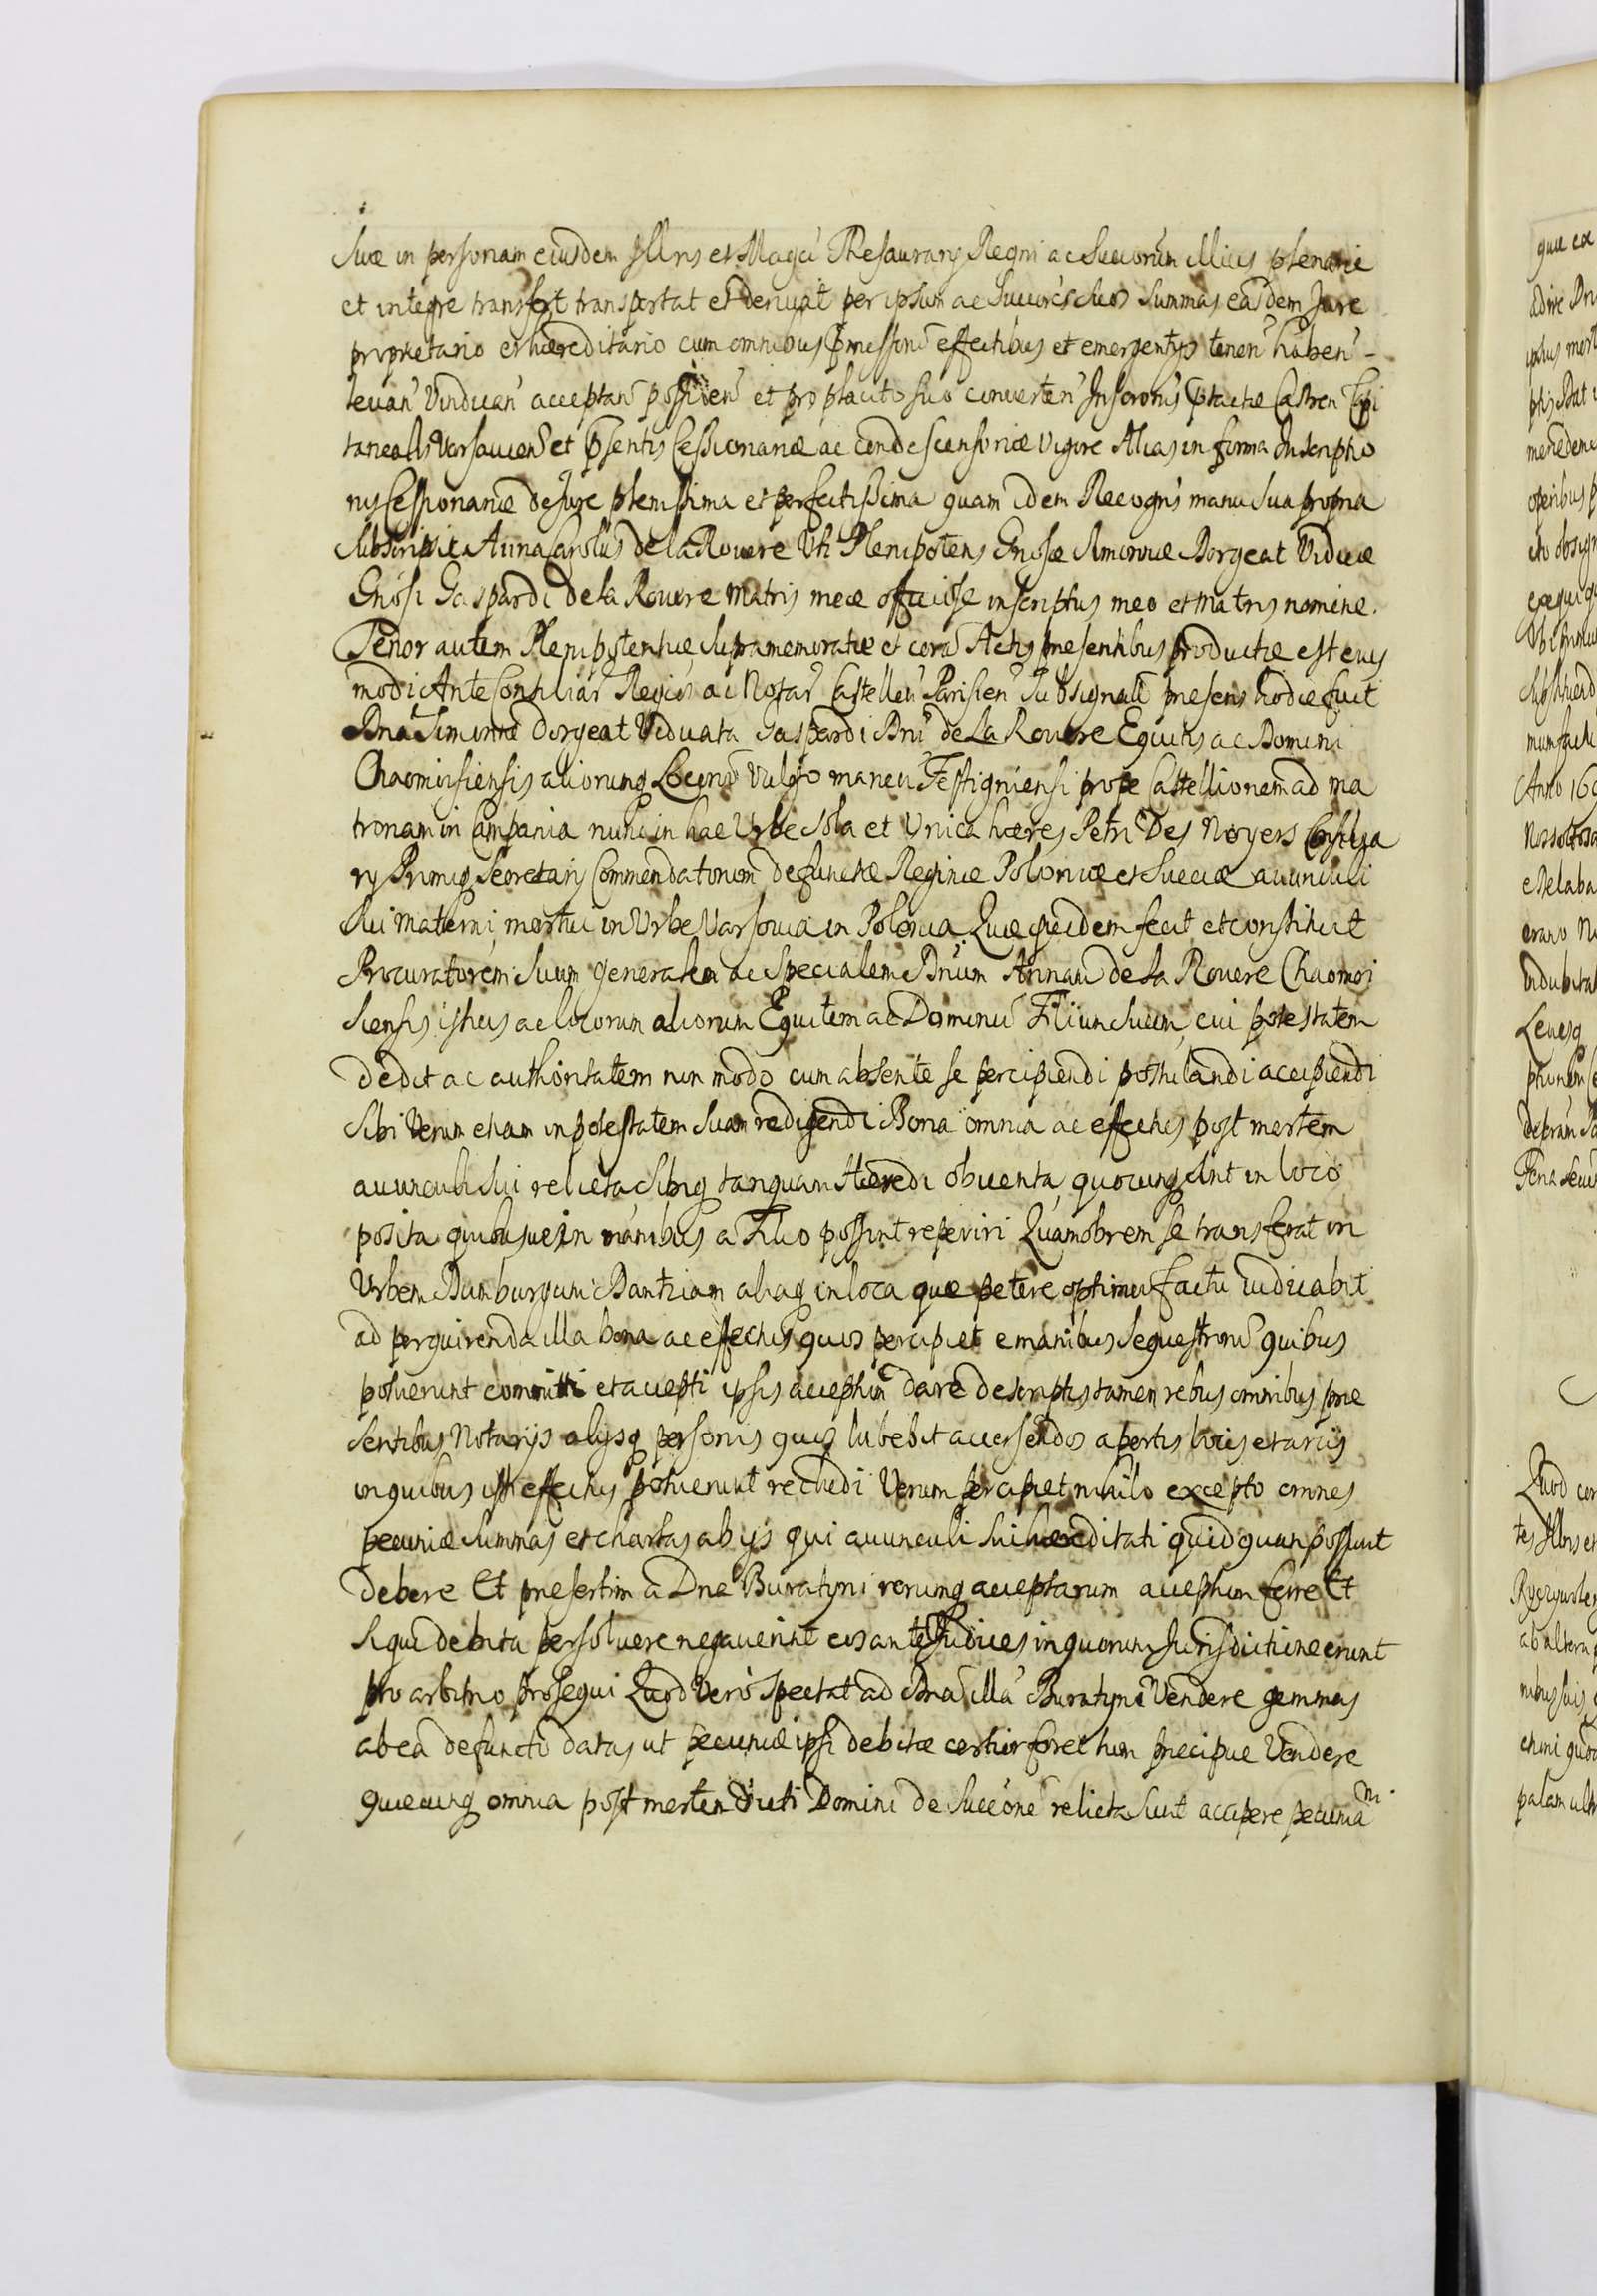 suæ in personam eiusdem Illris et Magci Thesaurarij Regni ac Succorum illius plenarie
et integre transfert transportat et derivat per ipsum ac Succres suos Summas easdem Jure
proprietario et hæreditario cum omnibus pmissorū effectibus et emergentijs tenen haben -
levan Vindican acceptan possiden et pro placito suo converten Inscronis ptactæ Castren Capi
tanealis Varsavien et pñsentis Cessionariæ ac condescensoriæ vigore Alias in forma Inscriptio
nis Cessionariæ de Jure plenissima et perfectissima quam idem Recogns manu sua propria
subscripsit Anna Carolus de la Rovere Uti Plenipotens Gnosæ Simonnæ Dorgeat Viduæ
Gnosi Gaspardi de la Rovere Matris meæ officiose inscriptus meo et Matris nomine.
Tenor autem Plenipotentiæ supramemoratæ et corā Actis præsentibus productæ est eius
modi Ante Consiliar Regios ac Notar Castelleti Parisien Subsignatū præsens hodie fuit
Dna Simonne Dorgeat Viduata Gaspardi Dni de La Rovere Equitis ac Domini
Chaomoisiensis aliorumq Locorū vulgo maneū Festigniensi prope Castellionem ad ma
tronam in Campania nunc in hac Urbe sola et Unica hæres Petri Des Noyers Consilia
rij Primiq Secretarij Commendatorum defunctæ Reginæ Poloniæ et Sueciæ avunculi
sui materni mortui in Urbe Varsovia in Polonia Quæ quidem fecit et constituit
Procuratorem suum generalem ac specialem Dnum Annam de la Rovere Chaomoi
siensis istius ac locorum aliorum Equitem ac Dominū Filium suum, cui potestatem
dedit ac authoritatem non modo cum absente se percipiendi postulandi accipiendi
sibi Verum etiam in potestatem suam redigendi Bona omnia ac effectus post mortem
avunculi sui relicta sibiq tanquam Hæredi obventa quocunq sint in loco
posita quibusuein manibus a Filio possint reperiri Quamobrem se transferat in
Urbem Dumburgum Dantziam aliaq in loca quæ petere optimū factu iudicabit
ad perquirenda illa bona ac effectus quos percipiet e manibus sequestrorū quibus
potuerunt committi et accepti ipsis acceptum dare descriptis tamen rebus omnibus præ
sentibus Notarijs alijsq personis quos lubebit accersendos apertis locis et arcis
in quibus isti effectus potuerunt recludi Verum percipiet nihilo excepto omnes
pecuniæ summas et chartas ab ijs qui avunculi sui hæreditati quidquam possunt
debere Et præsertim a Dna Buratyni rerumq acceptarum acceptum ferre Et
si qui debita persolvere negaverint eos ante Judices in quorum Jurisdictione erunt
pro arbitrio prosequi Quod Vero spectat ad Dnā illā Buratyni Vendere gemmas
ab ea defuncto datas ut pecuniæ ipsi debitæ certior foret tum præcipue Vendere
quæcunq omnia post mortem dicti Domini de Succone relicta sunt accipere pecuniam